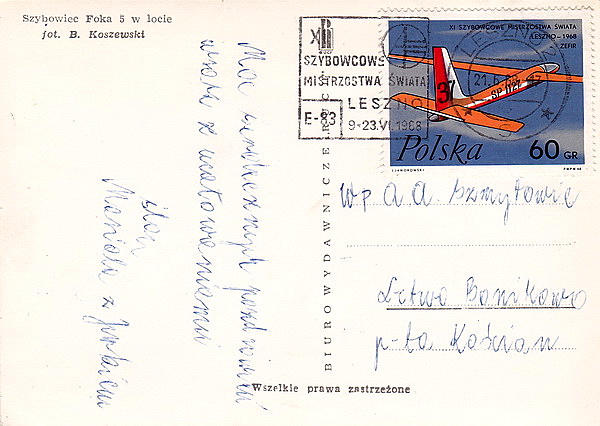 Szybowiec Foka 5 w locie
fot. B. Koszewski
Moc serdecznych pozdrowień
wraz z ucałowaniami
śle
Mariola z
BIURO WYDAWNICZE RUCH
Wszelkie prawa zastrzeżone
XI
SZYBOWCOWE
MISTRZOSTWA ŚWIATA
LESZNO
E-83
9-23.VI.1968
LESZNO
21.6.68
XI SZYBOWCOWE MISTRZOSTWA ŚWIATA
LESZNO-1968
ZEFIR
37
SP
Polska
60 GR
W p. A A Szmytowie
Bonikowo
p-ta Kościan